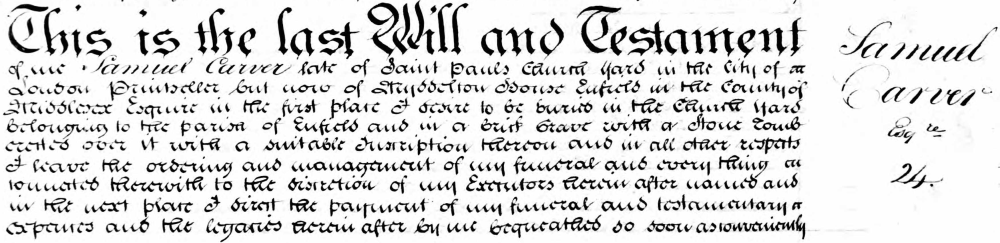 This is the last Will and Testament
of me Samuel Carver late of Saint Pauls Church Yard in the City of
London Printseller but now of Myddelton House Enfield in the County of
Middlesex Esquire in the first place I desire to be buried in the Church Yard
belonging to the parish of Enfield and in a Brick Grave with a Stone Tomb
erected over it with a suitable Inscription thereon and in all other respects
I leave the ordering and management of my funeral and every thing
connected therewith to the discretion of my Executors herein after named and
in the next place I direct the payment of my funeral and testamentary
expenses and the legacies herein after by me bequeathed so soon as conveniently
Samuel
Carver
Esqre
24.